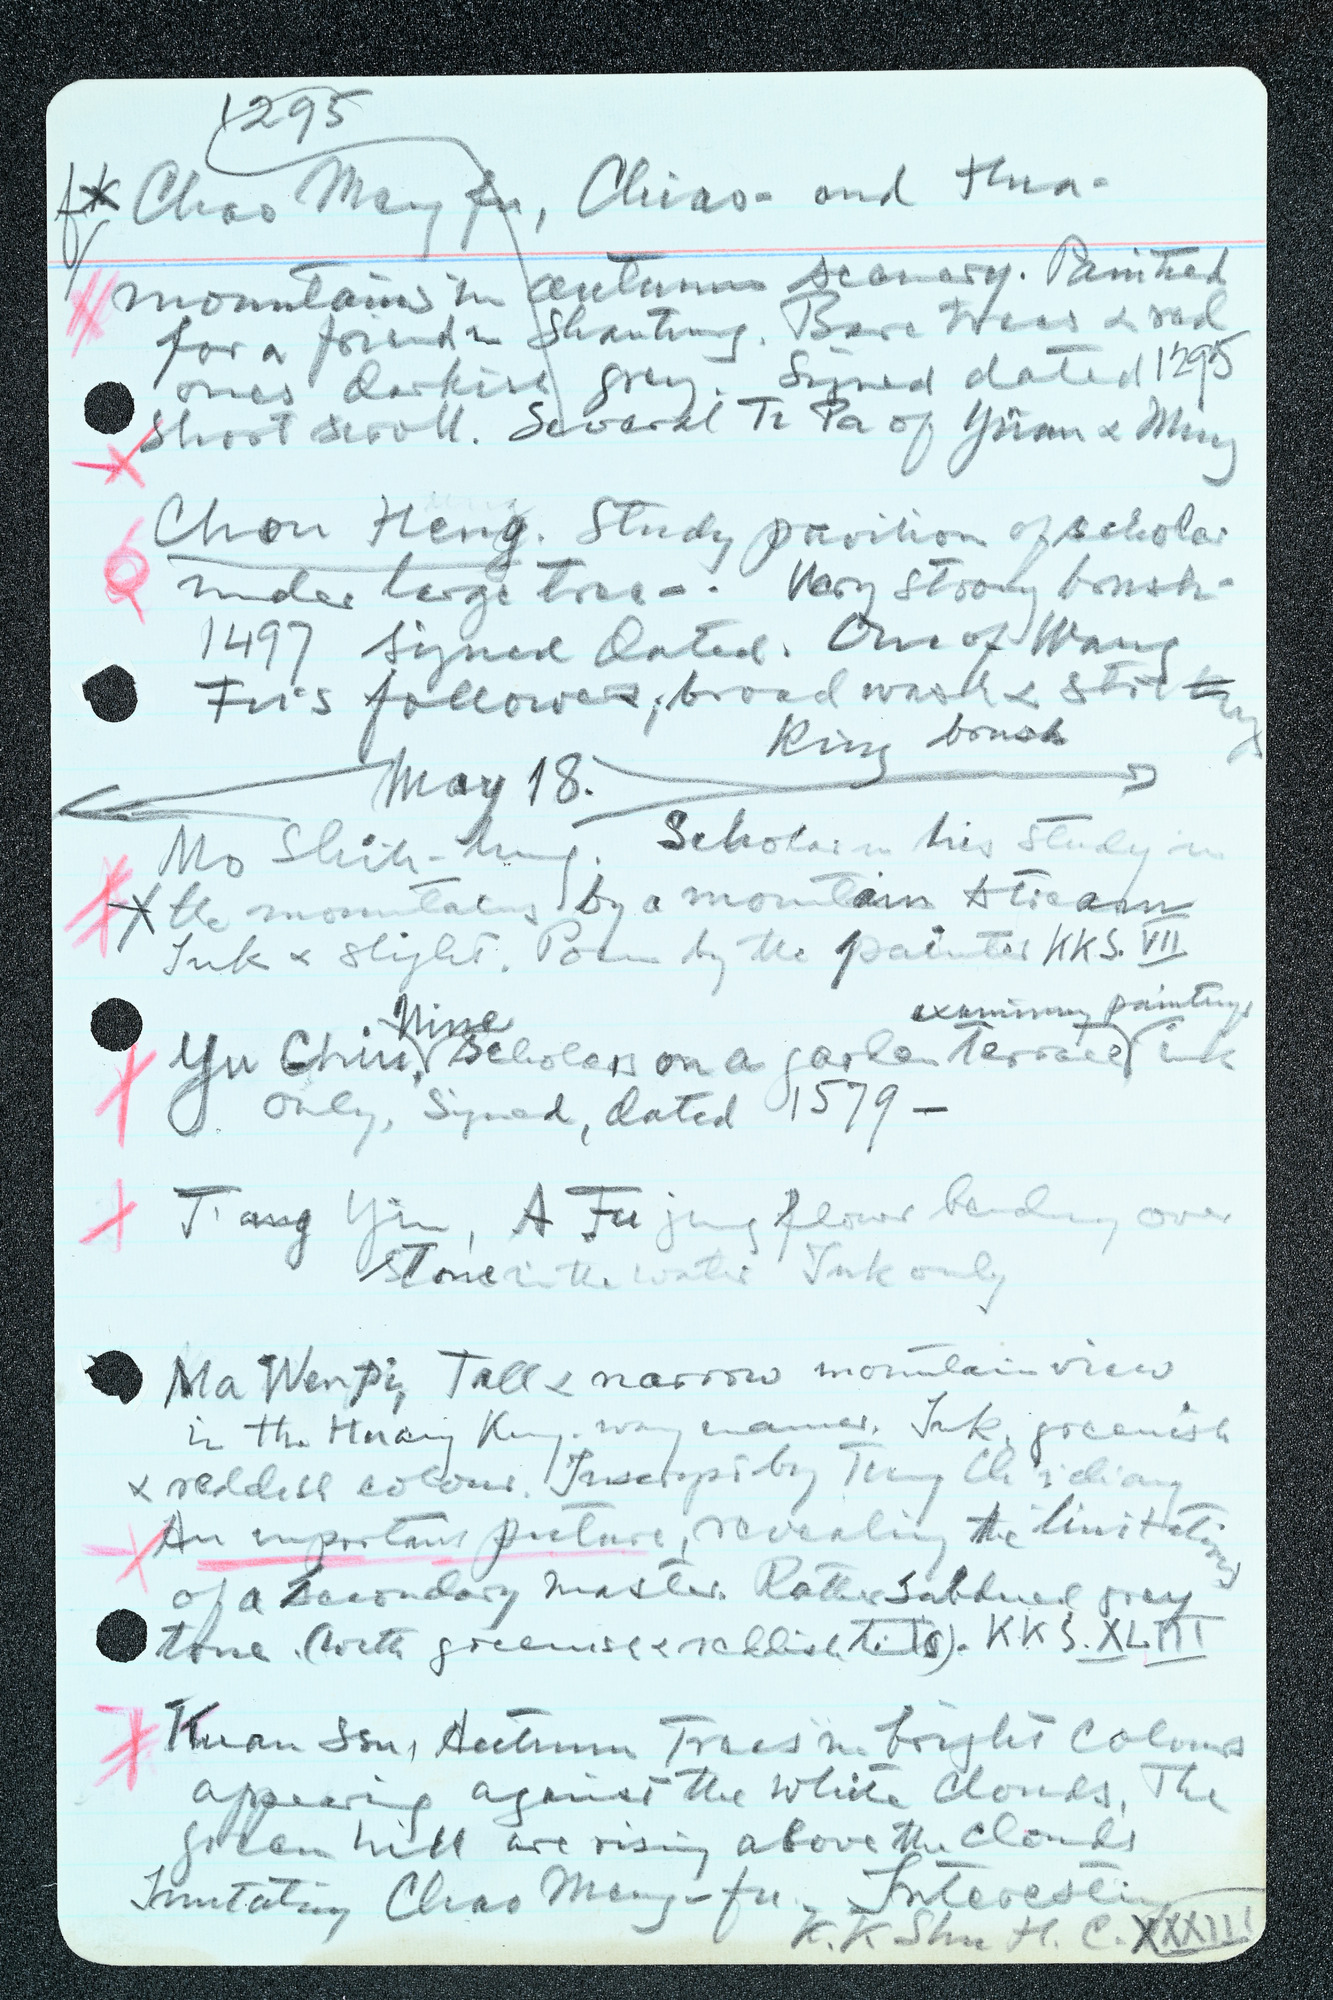 1295
Chao Meng fu, Chiao- and Hua-
mountains in autumn scenery. Painted
for a friend in Shantung. Bare trees & red
ones darkish grey. Signed dated 1295
Short scroll. Several Ti Pa of Yüan & Ming
Chou Heng. Study pavilion of scholar
under large tree-. Very strong brush-
1497 signed dated. One of Wang
Fu's followers; broad wash &
King brush
May 18.
Mo Shih-lung. Scholar in his study in
the mountains by a mountain stream
Ink & slight. Poem by the painter KKS. VII
Nine examining paintings
Yu Chiu, Scholars on a garden terrace ink
only, Signed, dated 1579 –
T'ang Yin, A Fu jung flower bending over
stone in the water Ink only
Ma Wen pi, Tall & narrow mountain view
in the Huang Kung-wang manner. Ink, greenish
& reddish colour. Inscript by Tung Ch'i-chang
An important picture, revealing the limitations
of a secondary master. Rather subdued grey
tone. (with greenish & reddish tints). KKS. XLIII
Kuan Ssu, Autumn Trees in bright colours
appearing against the white clouds. The
green hill are rising above the clouds
Imitating Chao Meng-fu. Interesting
K.K Shu H. C. XXXIII